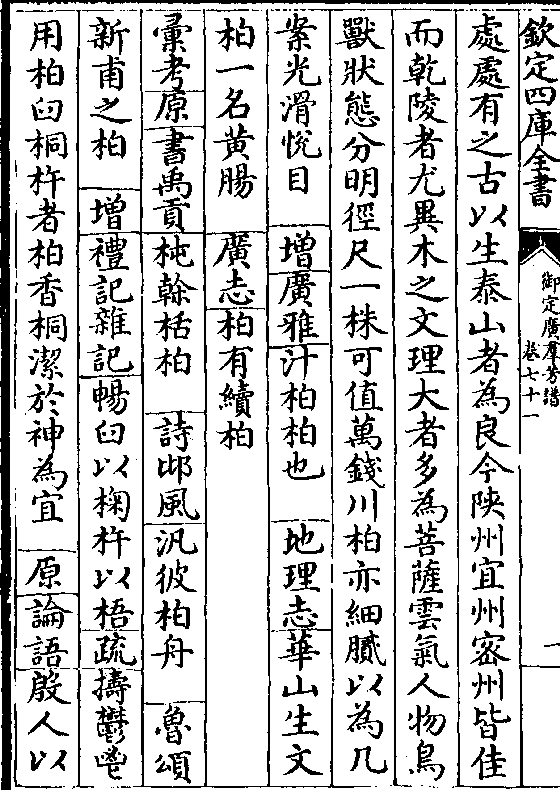 欽定四庫全書
御定廣羣芳譜
卷七十一
一
處處有之古以生泰山者為良今陜州宜州密州皆佳
而乾陵者尤異木之文理大者多為菩薩雲氣人物鳥
獸狀態分明徑尺一株可值萬錢川柏亦細膩以為几
案光滑悅目 增廣雅汁柏柏也 地理志華山生文
柏一名黄腸 廣志柏有續柏
彚考原書禹貢杶榦栝柏 詩邶風汎彼柏舟 魯頌
新甫之柏 增禮記雜記暢臼以椈杵以梧疏擣鬱鬯
用柏臼桐杵者柏香桐潔於神為宜 原論語殷人以